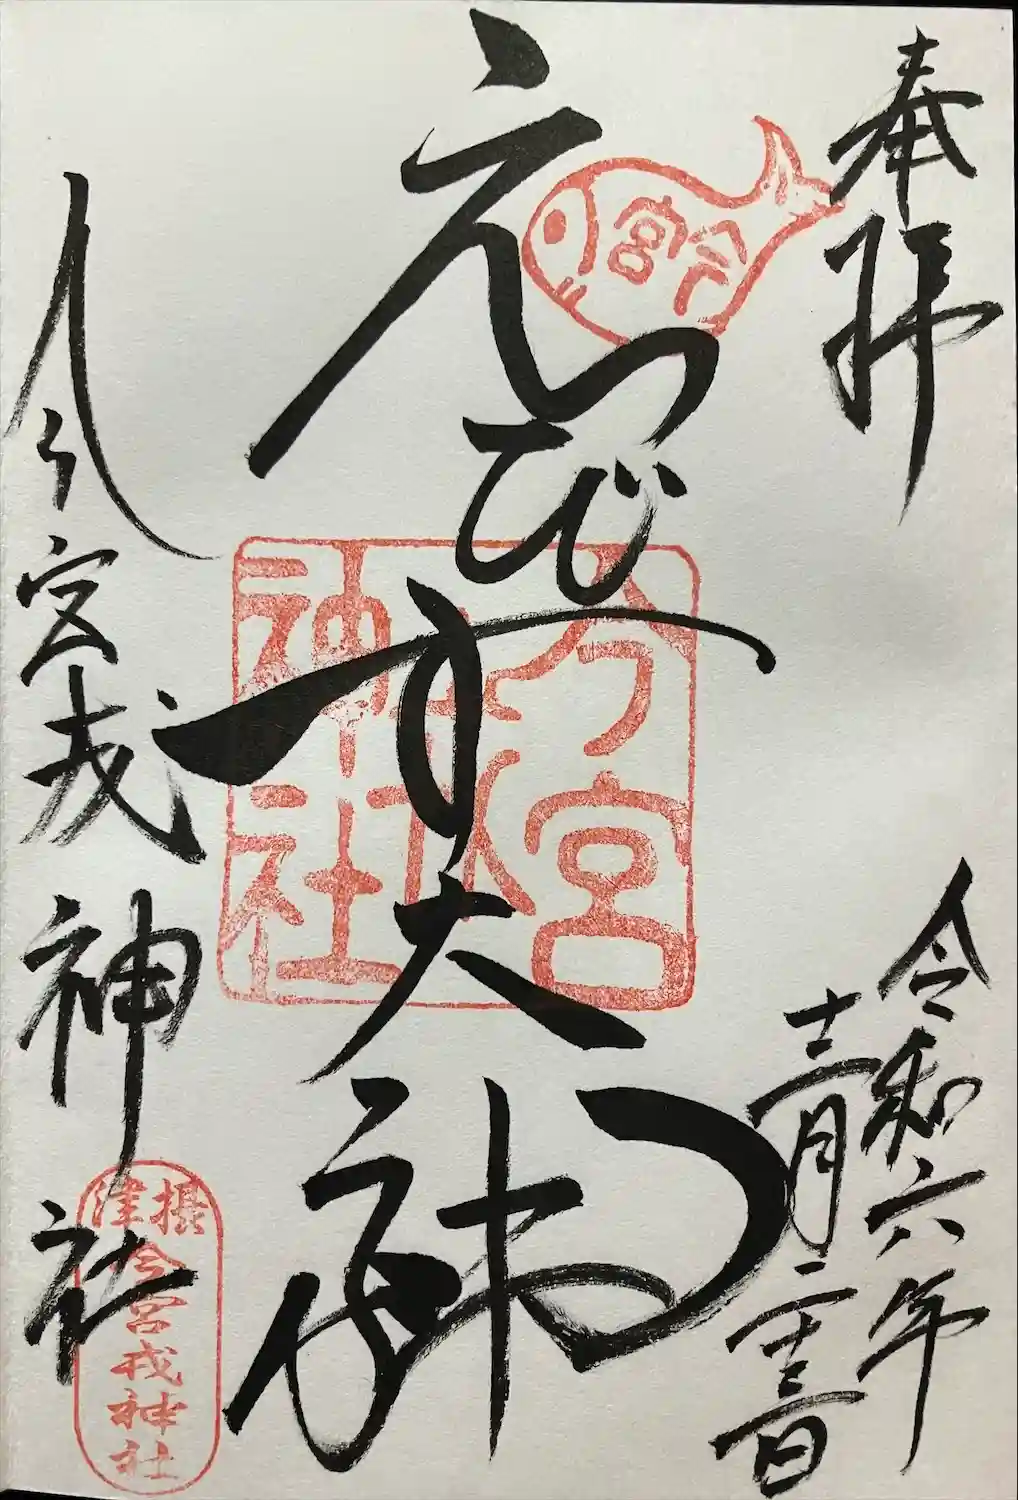 奉拝
令和六年
十二月二十三日
今宮
えびす大神
今宮戎神社
今宮戎神社
摂津
今宮戎神社